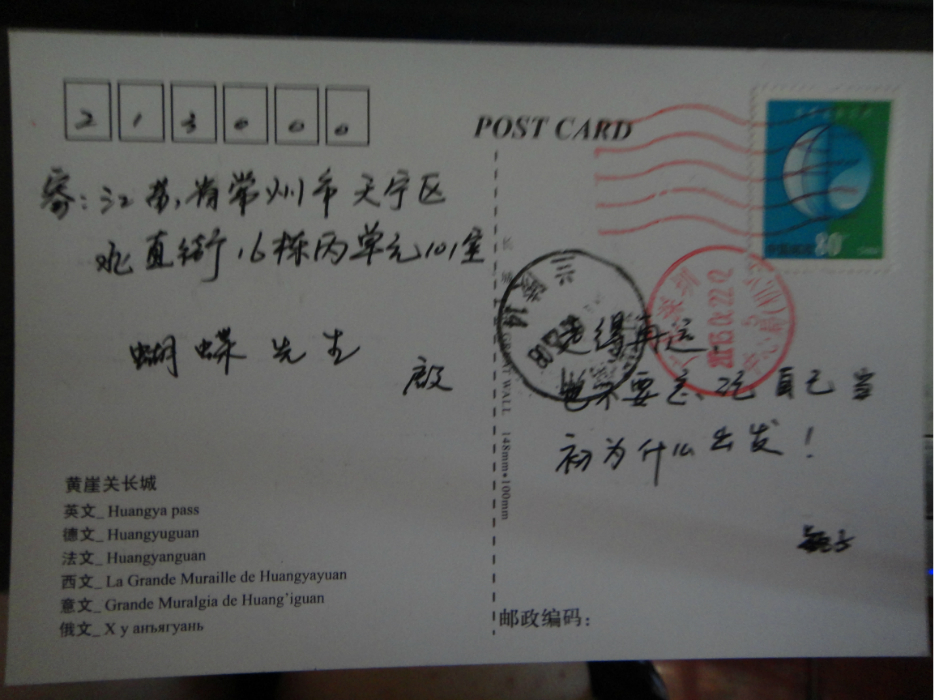 213000
POST CARD
寄:江苏省常州市天宁区
直街16栋丙单元101室
蝴蝶先生
启
中国邮政 80
走得再远
也不要忘记自己当
初为什么出发!
长城 THE GREAT WALL 148mm*100mm
黄崖关长城
英文_ Huangya pass
德文_ Huangyuguan
法文_ Huangyanguan
西文_ La Grande Muraille de Huangyayuan
意文_ Grande Muralgia de Huang'iguan
俄文_ Х у анъягуань
邮政编码: